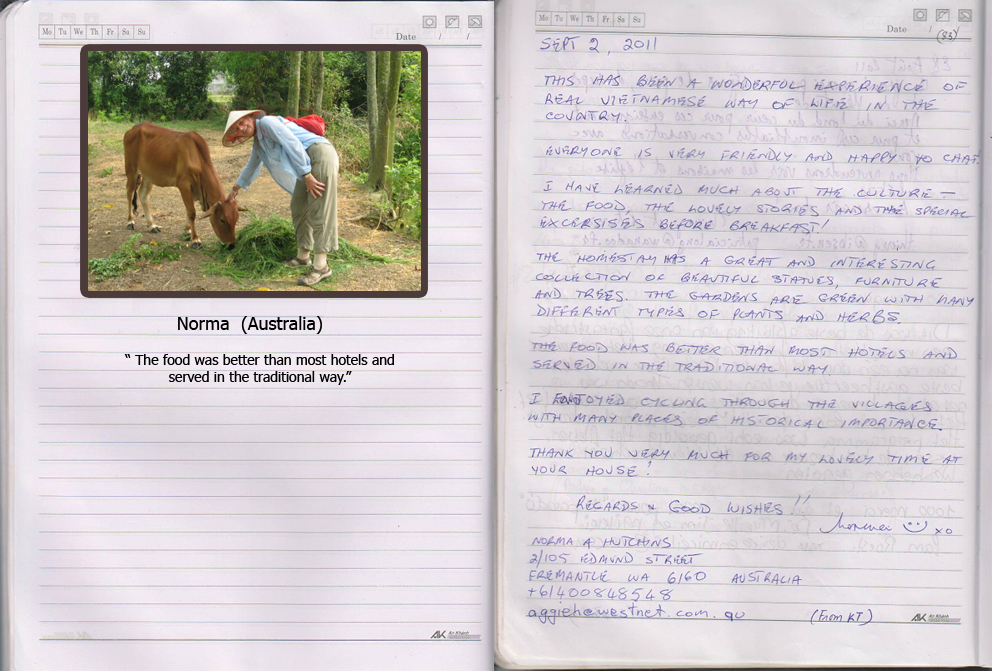 Mo Tu We Th Fr Sa Su
Date / /
Norma (Australia)
“ The food was better than most hotels and
served in the traditional way.”
AK An Khánh
Mo Tu We Th Fr Sa Su
Date / /
(33)
SEPT 2, 2011
THIS HAS BEEN A WONDERFUL EXPERIENCE OF
REAL VIETNAMESE WAY OF LIFE IN THE
COUNTRY.
EVERYONE IS VERY FRIENDLY AND HAPPY TO CHAT.
I HAVE LEARNED MUCH ABOUT THE CULTURE –
THE FOOD, THE LOVELY STORIES AND THE SPECIAL
EXCERSISES BEFORE BREAKFAST!
THE HOMESTAY HAS A GREAT AND INTERESTING
COLLECTION OF BEAUTIFUL STATUES, FURNITURE
AND TREES. THE GARDENS ARE GREEN WITH MANY
DIFFERENT TYPES OF PLANTS AND HERBS.
THE FOOD WAS BETTER THAN MOST HOTELS AND
SERVED IN THE TRADITIONAL WAY.
I ENJOYED CYCLING THROUGH THE VILLAGES
WITH MANY PLACES OF HISTORICAL IMPORTANCE.
THANK YOU VERY MUCH FOR MY LOVELY TIME AT
YOUR HOUSE!
REGARDS & GOOD WISHES !!
Norma xo
NORMA A HUTCHINS
2/105 EDMUND STREET
FREMANTLE WA 6160 AUSTRALIA
+61400848548
aggieh@westnet.com.au (From KT)
AK An Khánh